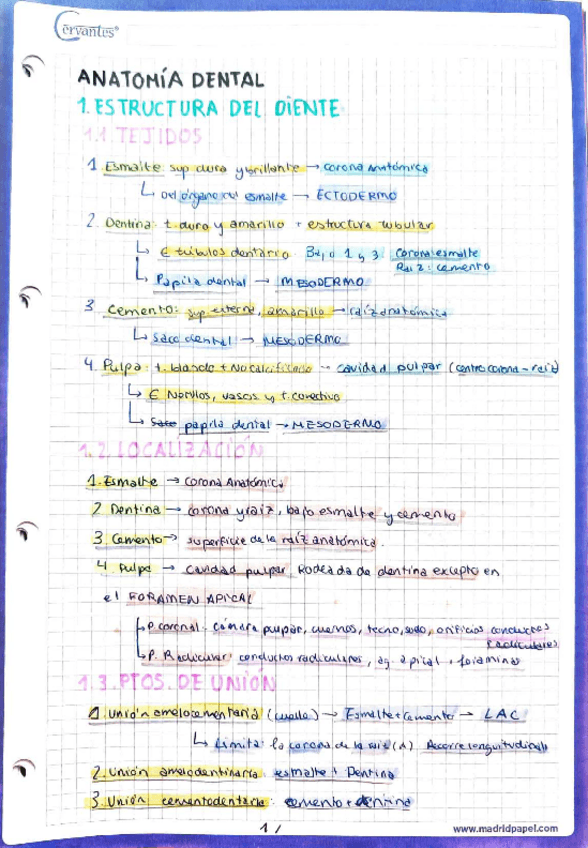 Cervantes®
ANATOMÍA DENTAL
1. ESTRUCTURA DEL DIENTE
1.1. TEJIDOS
1. Esmalte: sup dura y brillante → corona Anatómica
↳ Del órgano del esmalte → ECTODERMO
2. Dentina: t. duro y amarillo + estructura tubular
↳ € túbulos dentario Bajo 1 y 3 Corona: esmalte
Raíz: cemento
↳ Papila dental → MESODERMO
3. Cemento: sup externa, amarillo → raíz anatómica
↳ Saco dental → MESODERMO
4. Pulpa: t. blando + No calcificado -- cavidad pulpar (centro corona - raíz)
↳ € Nervios, vasos y t. conectivo
↳ Saco papila dental → MESODERMO
1.2. LOCALIZACIÓN
1. Esmalte → Corona Anatómica
2 Dentina → corona y raíz, bajo esmalte y cemento
3. Cemento → superficie de la raíz anatómica.
4 Pulpa → cavidad pulpar Rodeada de dentina excepto en
el FORAMEN APICAL
↳ P. coronal: cámara pulpar, cuernos, techo, suelo, orificios conductos
radiculares
↳ P. Radicular: conductos radiculares, ag. apical + foraminas
1.3. PTOS. DE UNIÓN
1. Unión amelocementaria (cuello) → Esmalte + Cemento → LAC
↳ Limita: la corona de la raíz (A) Recorre longitudinal
2. Unión amelodentinaria: esmalte + Dentina
3. Unión cementodentaria: cemento + dentina
1 /
www.madridpapel.com